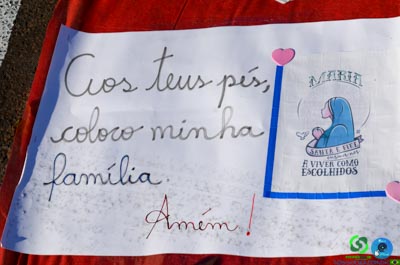 Aos teus pés,
coloco minha
família.
Amém!
MARIA
A VIVER COMO
ESCOLHIDOS